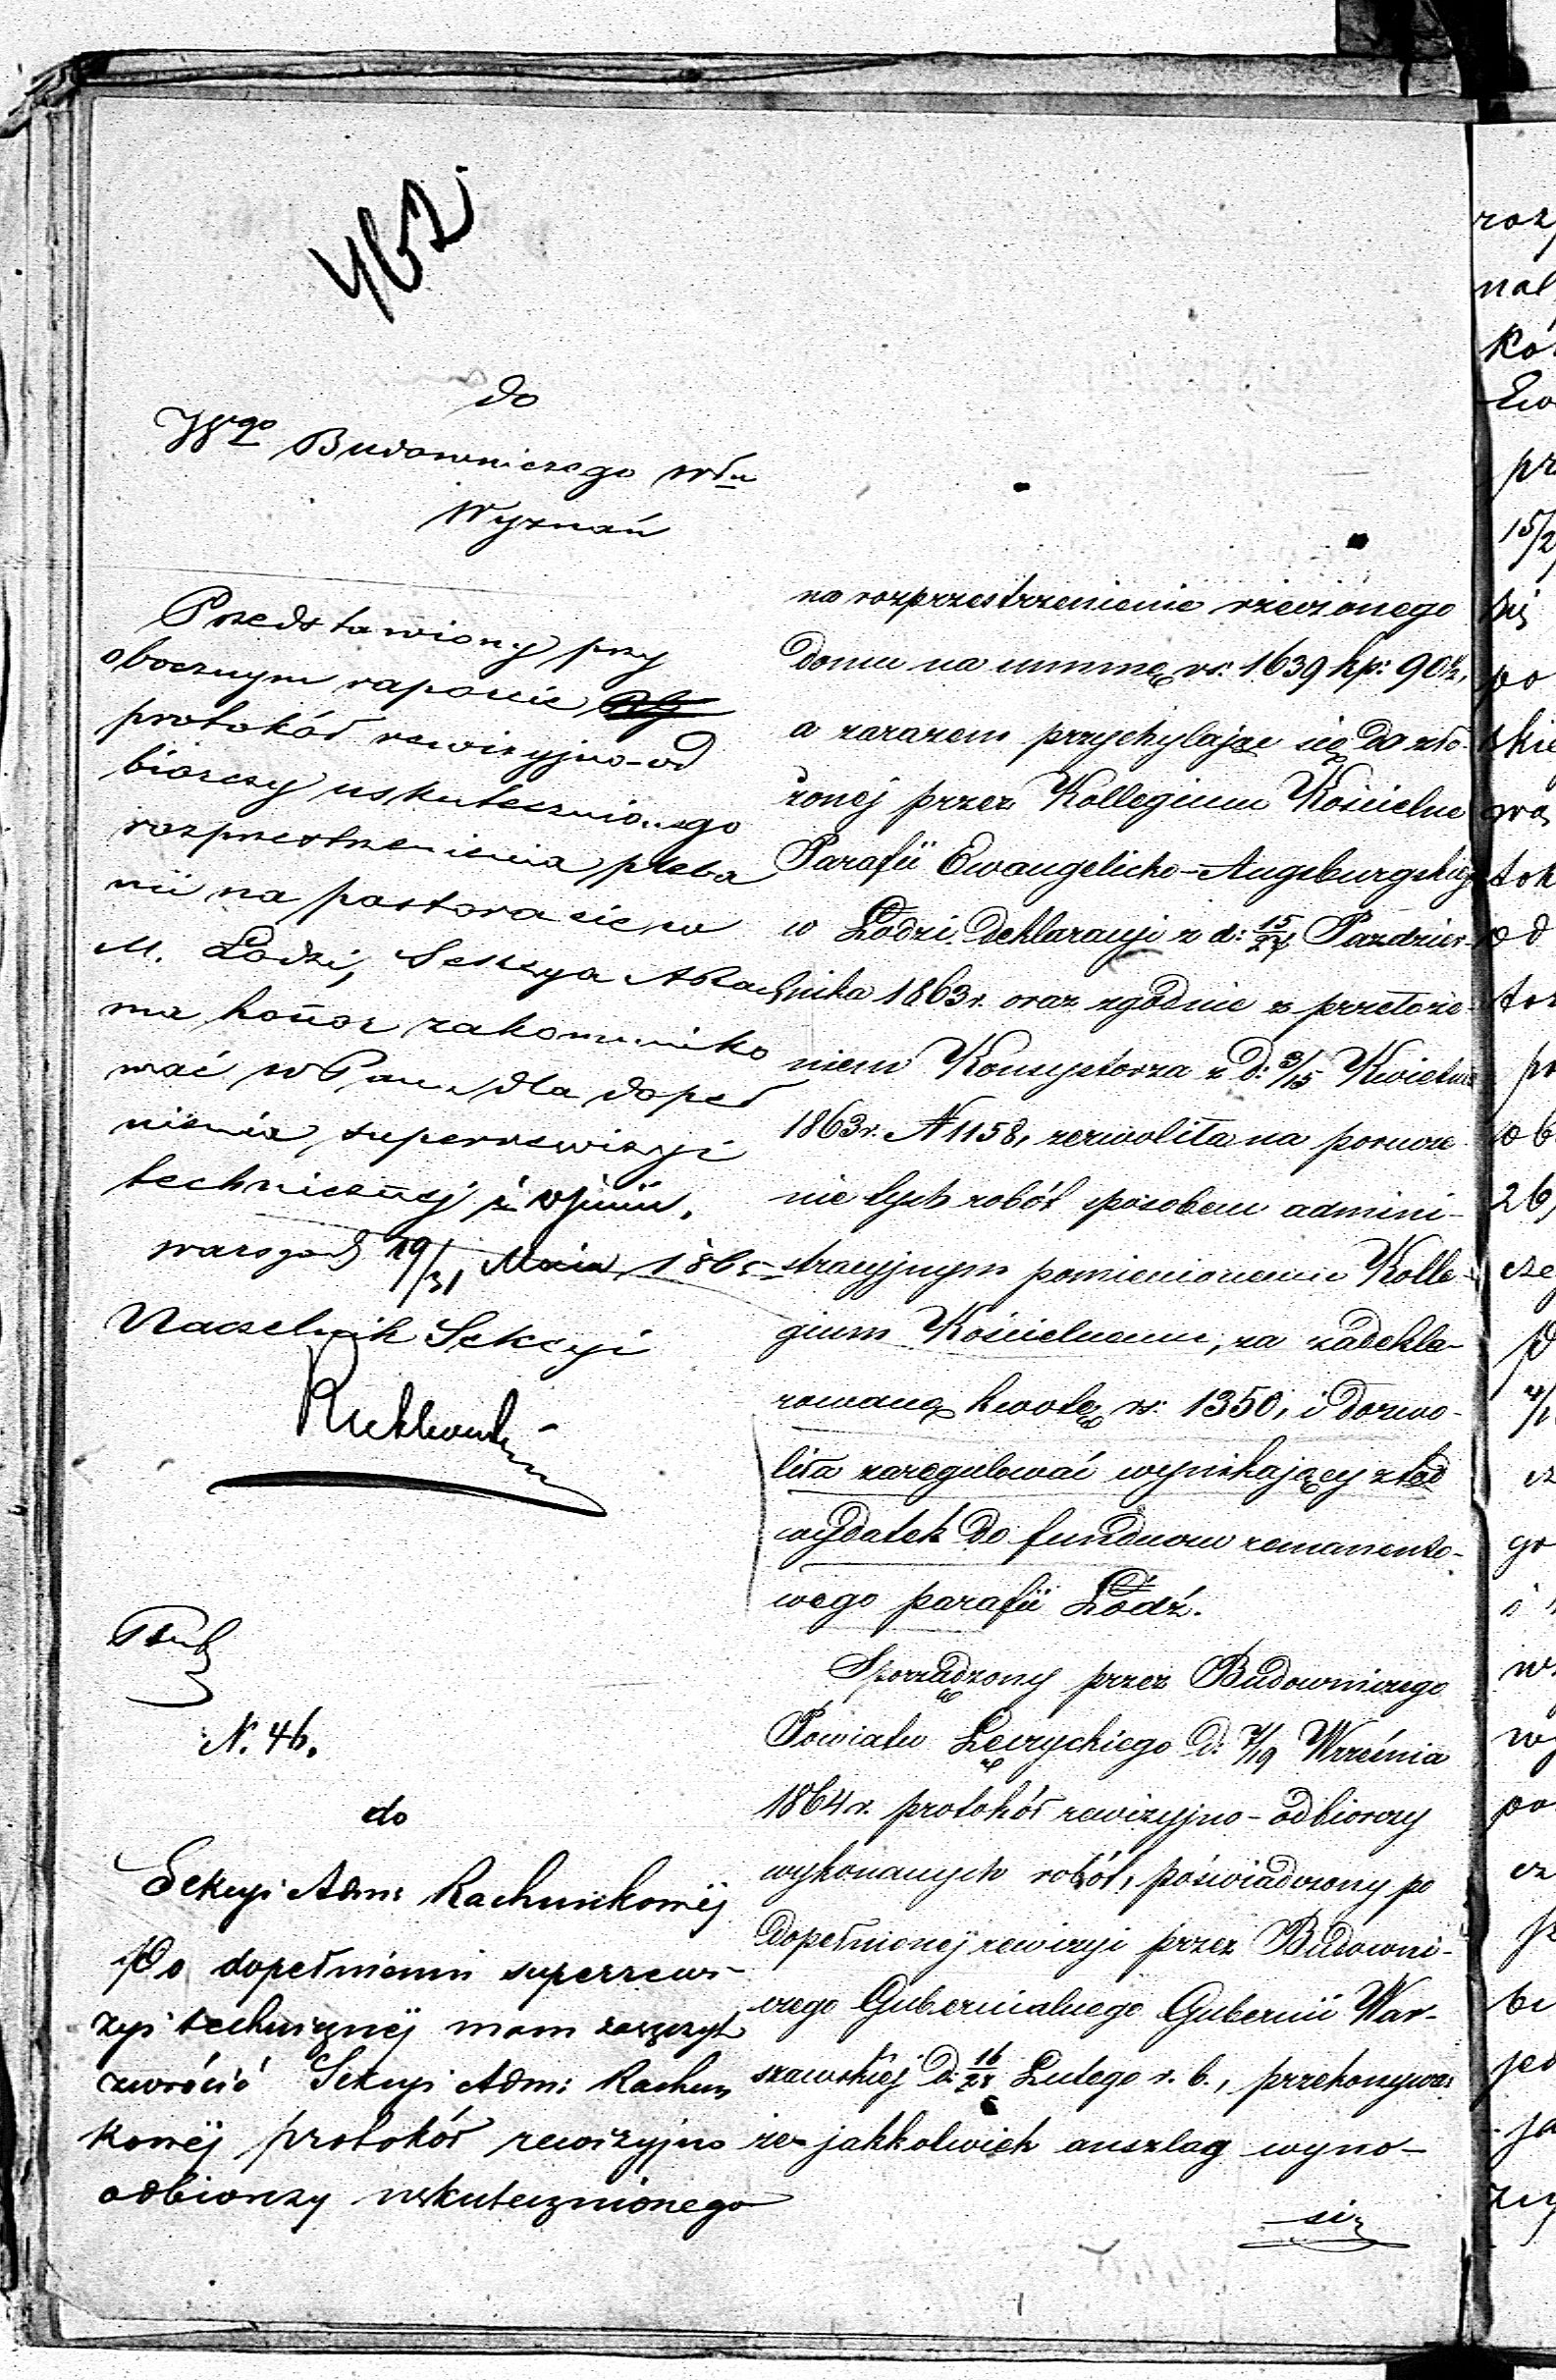 462
do
JWgo Budowniczego Włu
Wyznań
Przedstawiony przy
obocznym raporcie
protokół rewizyjno-od
biorczy uskutecznionego
rozprzestrzenienia pleba
nii na pastora się w
M. Łodzi, Sekcya ARach
ma honor zakomuniko
wać WPanu dla dopeł
nienia superrewizyi
technicznej i opinii.
Warszawa 19/31 Maia 1865
Naczelnik Sekcyi
N. 46.
do
Sekcyi Adm: Rachunkowéj
Po dopełnieniu superrewi-
zyi technicznéj mam zaszczyt
zwrócić Sekcyi Adm: Rachun
kowéj protokół rewizyjno
odbiorczy uskutecznionego
na rozprzestrzenienie rzeczonego
domu na summę rs: 1639 kp: 90½,
a zarazem przychylając się do zło-
żonéj przez Kollegium Kościelne
Parafii Ewangelicko-Augsburgskiéj
w Łodzi deklaracyi z d: 15/27 Paździer-
nika 1863 r. oraz zgodnie z przełoże-
niem Konsystorza z d: 3/15 Kwietnia
1863 r. N 1158, zezwoliła na porucze
nie tych robót sposobem admini-
stracyjnym pomienionemu Kolle-
gium Kościelnemu, za zadekla-
rowaną kwotę rs: 1350, i dozwo-
liła zaregulować wynikający ztąd
wydatek do funduszu remanento-
wego parafii Łódź.
Sporządzony przez Budowniczego
Powiatu Łęczyckiego d: 7/19 Września
1864 r. protokół rewizyjno-odbiorczy
wykonanych robót, poświadczony po
dopełnionéj rewizyi przez Budowni-
czego Gubernialnego Gubernii War-
szawskiéj d: 16/28 Lutego r. b., przekonywa:
że jakkolwiek anszlag wyno-
sił